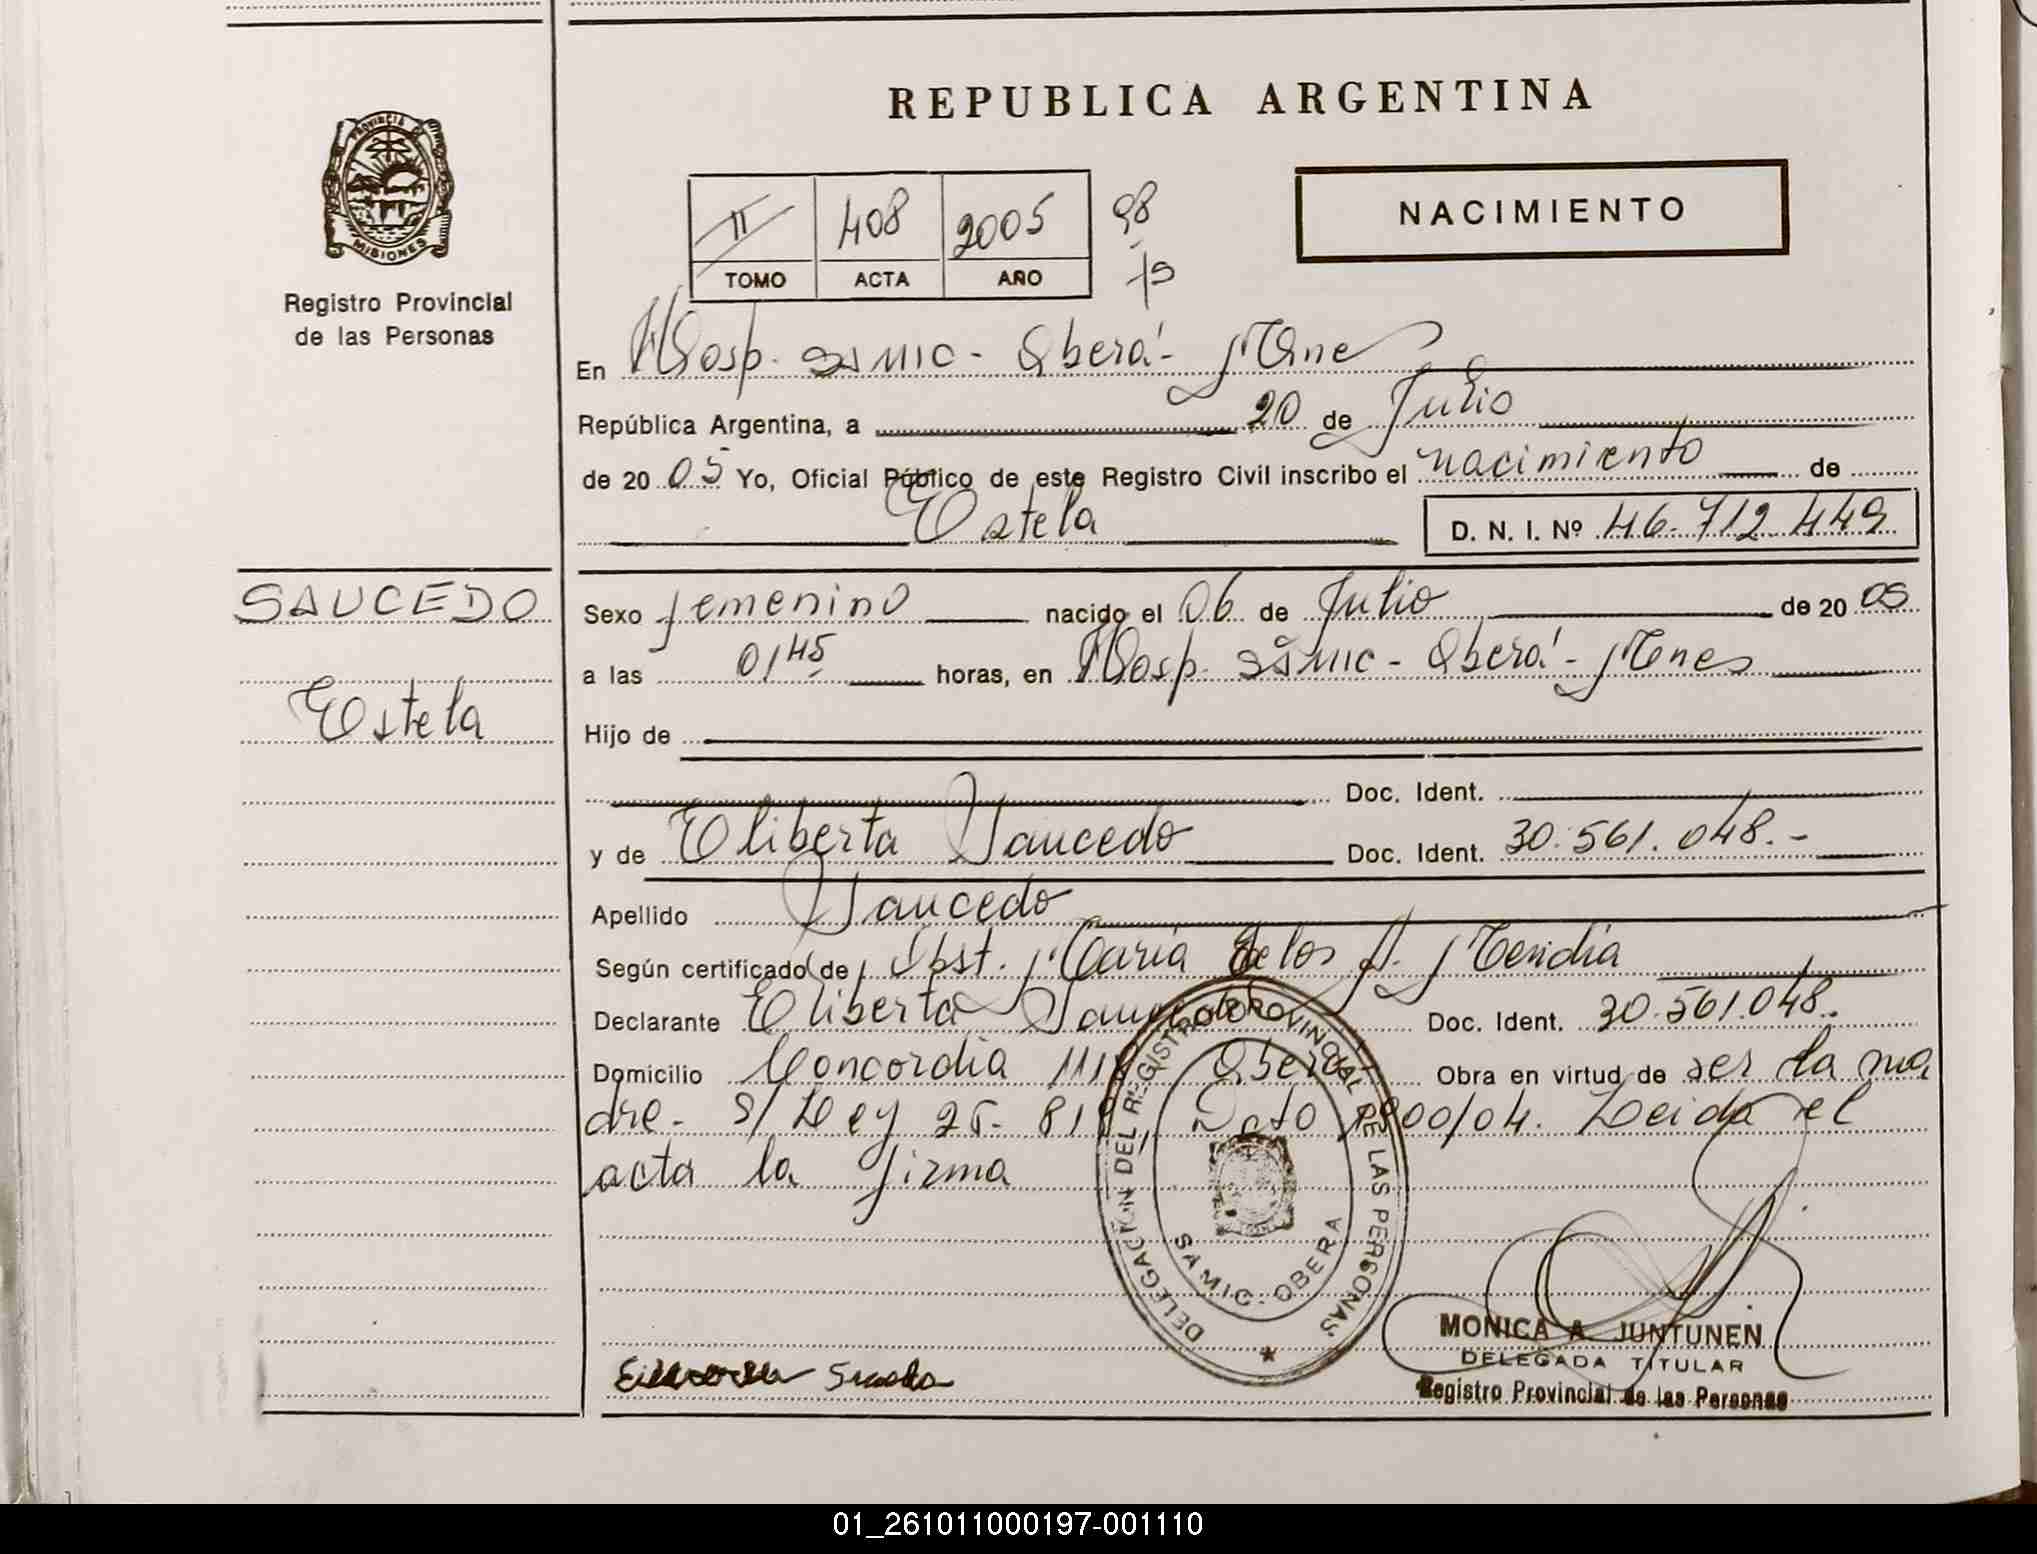 REPUBLICA ARGENTINA
PROVINCIA DE
MISIONES
Registro Provincial
de las Personas
II 408 2005 98
TOMO ACTA AÑO
NACIMIENTO
En Hosp. SAMIC - Oberá - Mnes
República Argentina, a 20 de Julio
de 20 05 Yo, Oficial Público de este Registro Civil inscribo el nacimiento de
Estela D. N. I. Nº 46.712.449
SAUCEDO
Estela
Sexo femenino nacido el 06 de Julio de 20 05
a las 01 45 horas, en Hosp. SAMIC - Oberá - Mnes
Hijo de
Doc. Ident.
y de Eliberta Saucedo Doc. Ident. 30.561.048.-
Apellido Saucedo
Según certificado de Obst. María de los A. Mendia
Declarante Eliberta Saucedo Doc. Ident. 30.561.048.
Domicilio Concordia Oberá Obra en virtud de ser la ma
dre - S/ Ley 25.819, Dcto 1900/04. Leida el
acta la firma
DELEGACION DEL REGISTRO PROVINCIAL DE LAS PERSONAS
SAMIC - OBERA
MONICA A JUNTUNEN
DELEGADA TITULAR
Registro Provincial de las Personas
01_261011000197-001110